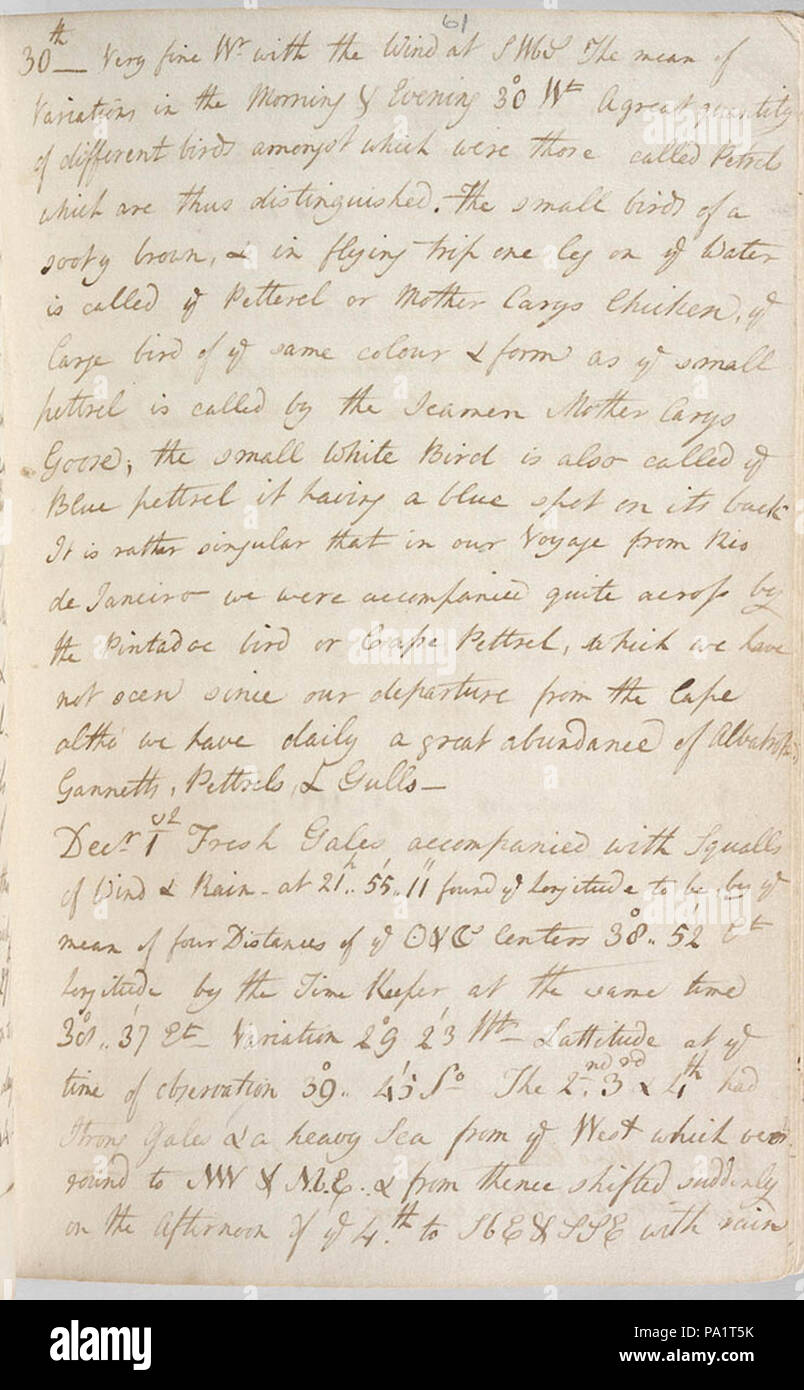 61
30th Very fine Wr with the Wind at SWbS The mean of
Variations in the Morning & Evening 30° Wt A great quantity
of different birds amongst which were those called Petrels
which are thus distinguished. The small birds of a
sooty brown, & in flying trip one leg on ye Water
is called ye Petterel or Mother Carys Chicken, ye
large bird of ye same colour & form as ye small
pettrel is called by the Seamen Mother Carys
Goose; the small White Bird is also called ye
Blue pettrel it having a blue spot on its back
It is rather singular that in our Voyage from Rio
de Janeiro we were accompanied quite across by
the Pintadoe bird or Cape Pettrel, which we have
not seen since our departure from the Cape
altho' we have daily a great abundance of Albatross,
Gannetts, Pettrels, & Gulls—
Decr 1st Fresh Gales accompanied with Squalls
of Wind & Rain - at 21h.. 55'.. 11" found ye Longitude to be by ye
mean of four Distances of ye ☉ & ☾ Centers 38°.. 52' Et
Longitude by the Time Keeper at the same time
38°.. 37' Et Variation 29° 23' Wt Lattitude at ye
time of observation 39°.. 45' So The 2nd. 3rd & 4th had
Strong Gales & a heavy Sea from ye West which
round to NW & NbE.. & from thence shifted suddenly
on the Afternoon of ye 4th to SbE & SSE with rain
alamy
Image ID: PA1T5K
www.alamy.com